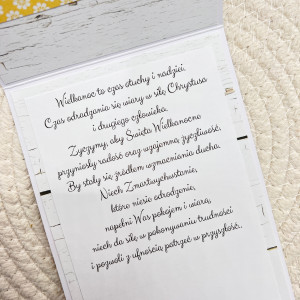 Wielkanoc to czas otuchy i nadziei.
Czas odradzania się wiary w siłę Chrystusa
i drugiego człowieka.
Życzymy, aby Święta Wielkanocne
przyniosły radość oraz wzajemną życzliwość.
By stały się źródłem wzmacniania ducha.
Niech Zmartwychwstanie,
które niesie odrodzenie,
napełni Was pokojem i wiarą,
niech da siłę w pokonywaniu trudności
i pozwoli z ufnością patrzeć w przyszłość.